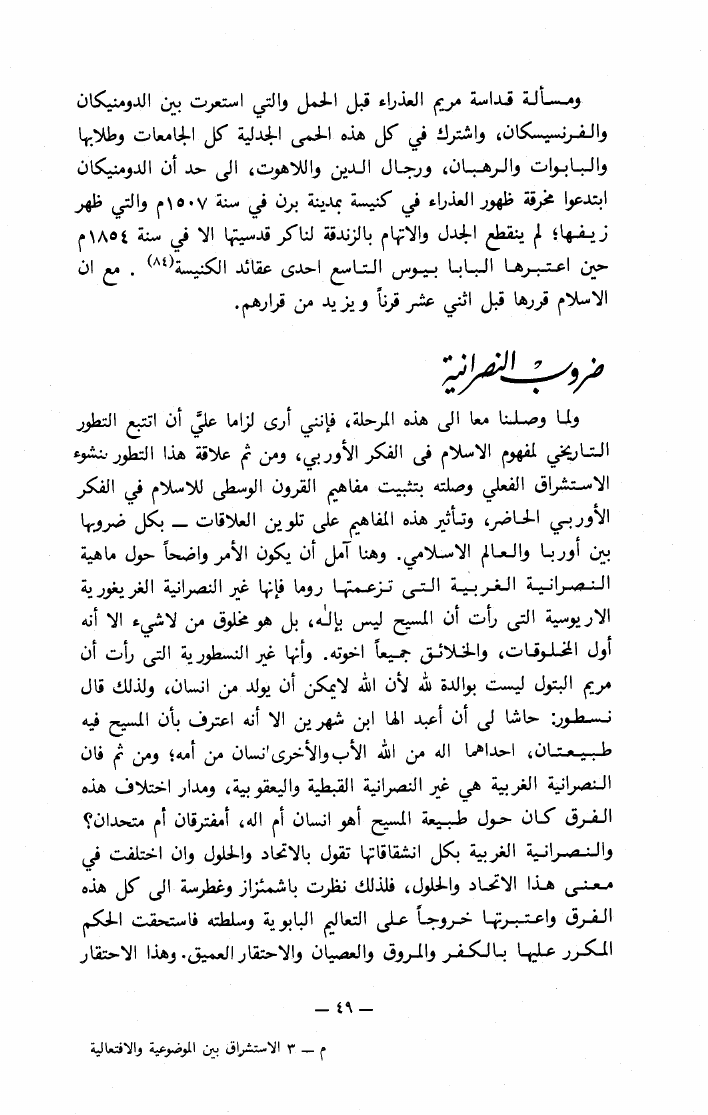 ومسألة قداسة مريم العذراء قبل الحمل والتي استعرت بين الدومنيكان
والفرنسيسكان، واشترك في كل هذه الحمى الجدلية كل الجامعات وطلابها
والبابوات والرهبان، ورجال الدين واللاهوت، الى حد أن الدومنيكان
ابتدعوا مخرقة ظهور العذراء في كنيسة بمدينة برن في سنة ١٥٠٧م والتي ظهر
زيفها؛ لم ينقطع الجدل والاتهام بالزندقة لناكر قدسيتها الا في سنة ١٨٥٤م
حين اعتبرها البابا بيوس التاسع احدى عقائد الكنيسة(٨٤) . مع ان
الاسلام قررها قبل اثني عشر قرناً ويزيد من قرارهم.
ضروب النصرانية
ولما وصلنا معا الى هذه المرحلة، فإنني أرى لزاما عليَّ أن اتتبع التطور
التاريخي لمفهوم الاسلام فى الفكر الأوربي، ومن ثم علاقة هذا التطور بنشوء
الاستشراق الفعلي وصلته بتثبيت مفاهيم القرون الوسطى للاسلام في الفكر
الأوربي الحاضر، وتأثير هذه المفاهيم على تلوين العلاقات ــ بكل ضروبها
بين أوربا والعالم الاسلامي. وهنا آمل أن يكون الأمر واضحاً حول ماهية
النصرانية الغربية التى تزعمتها روما فإنها غير النصرانية الغريغورية
الاريوسية التى رأت أن المسيح ليس بإله، بل هو مخلوق من لاشيء الا أنه
أول المخلوقات، والخلائق جميعاً اخوته. وأنها غير النسطورية التى رأت أن
مريم البتول ليست بوالدة لله لأن الله لايمكن أن يولد من انسان، ولذلك قال
نسطور: حاشا لى أن أعبد الها ابن شهرين الا أنه اعترف بأن المسيح فيه
طبيعتان، احداهما اله من الله الأب والأخرى انسان من أمه؛ ومن ثم فان
النصرانية الغربية هي غير النصرانية القبطية واليعقوبية، ومدار اختلاف هذه
الفرق كان حول طبيعة المسيح أهو انسان أم اله، أمفترقان أم متحدان؟
والنصرانية الغربية بكل انشقاقاتها تقول بالاتحاد والحلول وان اختلفت في
معنى هذا الاتحاد والحلول، فلذلك نظرت باشمئزاز وغطرسة الى كل هذه
الفرق واعتبرتها خروجاً على التعاليم البابوية وسلطته فاستحقت الحكم
المكرر عليها بالكفر والمروق والعصيان والاحتقار العميق. وهذا الاحتقار
ــ ٤٩ ــ
م ــ ٣ الاستشراق بين الموضوعية والافتعالية